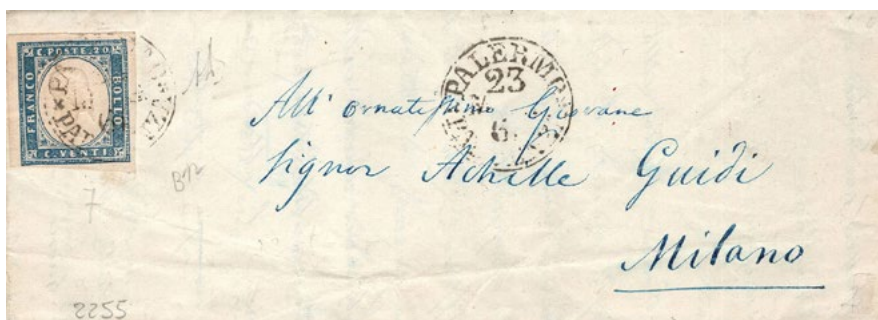 C. POSTE. 20
FRANCO
BOLLO
C. VENTI
PALERMO
23
6
All' ornatissimo Giovane
Signor Achille Guidi
Milano
B12
7
2255